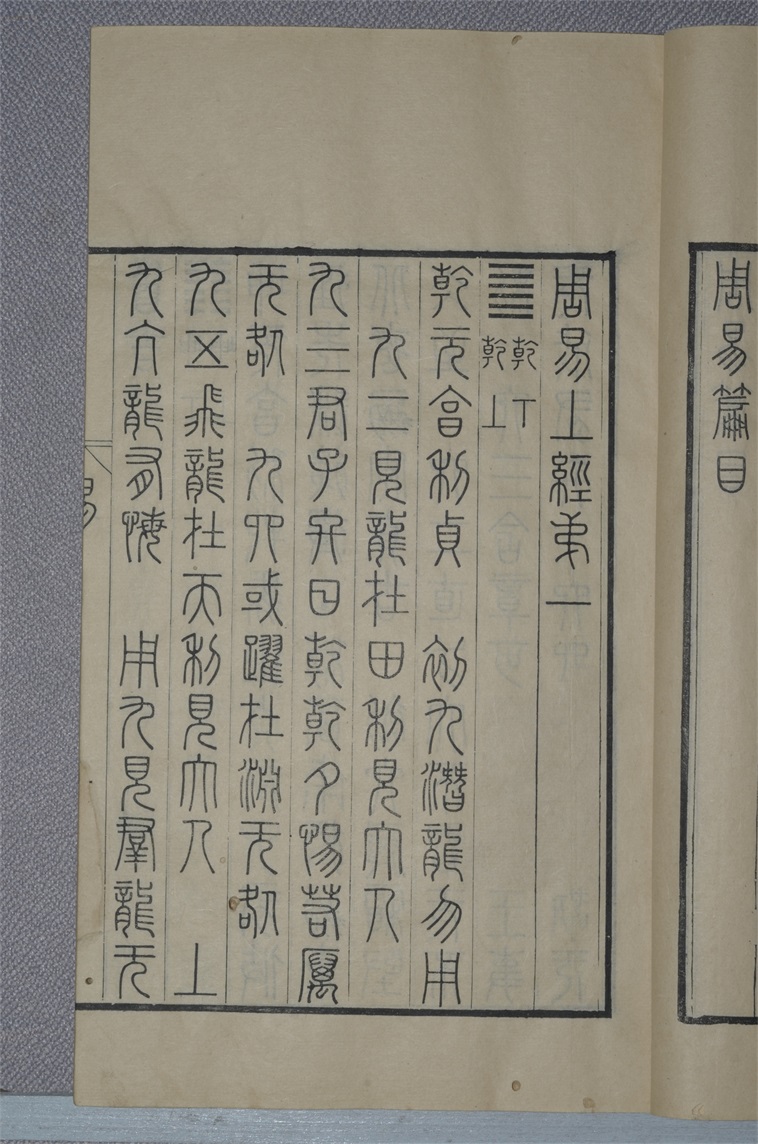 周易篇目
周易上經弟一
䷀乾下乾上
乾元亨利貞　初九潛龍勿用
九二見龍在田利見大人
九三君子終日乾乾夕惕若厲
无咎　九四或躍在淵无咎
九五飛龍在天利見大人　上
九亢龍有悔　用九見羣龍无
易